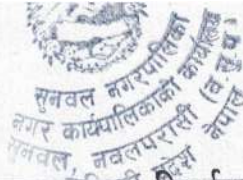 सुनवल नगरपालिका
नगर कार्यपालिकाको कार्यालय
सुनवल, नवलपरासी (ब.सु.प.)
प्रदेश नेपाल